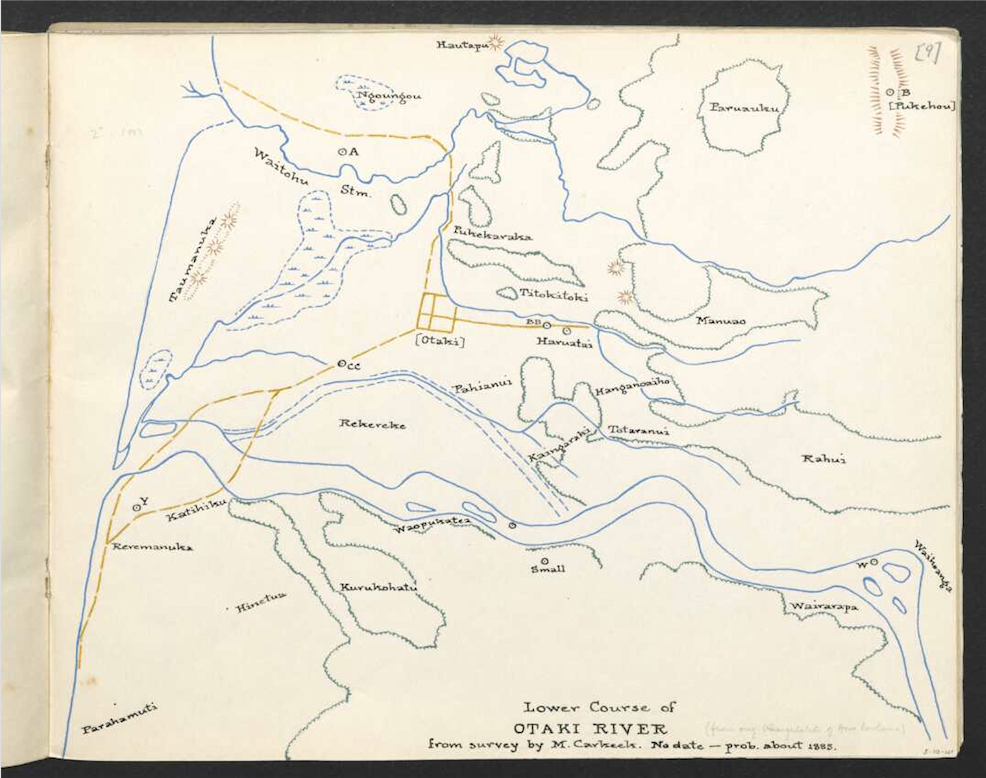 [9]
Hautapu
Ngoungou
Paruauku
B
[Pukehou]
A
Waitohu
Stm.
Taumanuka
Pukekaraka
Titokitoki
Manuao
BB
[Otaki]
Haruatai
CC
Pahianui
Hanganoaiho
Rekereke
Kaingaraki
Totaranui
Rahui
Y
Katihiku
Waopukatea
Reremanuka
Small
W
Waihoanga
Hinetua
Kurukohatu
Wairarapa
Parahamuti
Lower Course of
OTAKI RIVER
from survey by M. Carkeek. No date — prob. about 1885.